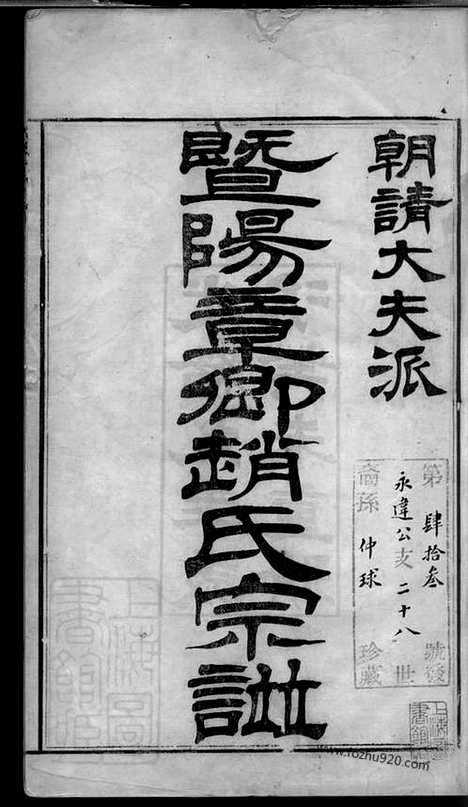 朝請大夫派
暨陽章卿趙氏宗譜
第肆拾叁號發
永違公支二十八世
裔孫仲球珍藏
www.fozhu920.com